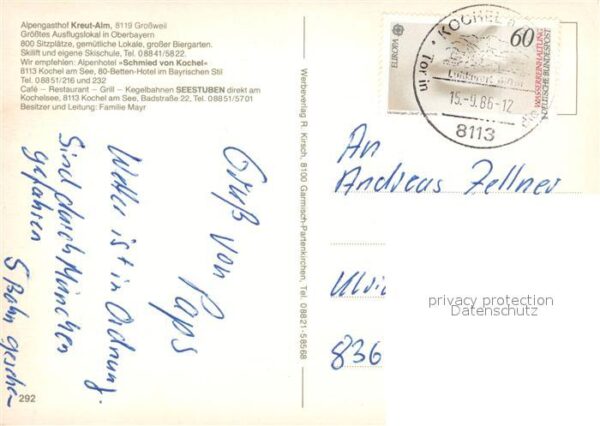 Alpengasthof Kreut-Alm, 8119 Großweil
Größtes Ausflugslokal in Oberbayern
800 Sitzplätze, gemütliche Lokale, großer Biergarten.
Skilift und eigene Skischule, Tel. 08841/5822.
Wir empfehlen: Alpenhotel »Schmied von Kochel«
8113 Kochel am See, 80-Betten-Hotel im Bayrischen Stil
Tel. 08851/216 und 232
Café – Restaurant – Grill – Kegelbahnen SEESTUBEN direkt am
Kochelsee, 8113 Kochel am See, Badstraße 22, Tel. 08851/5701
Besitzer und Leitung: Familie Mayr
Gruß von
Paps
Wetter ist in Ordnung.
Sind durch München
gefahren
S Bahn
292
Werbeverlag R. Kirsch, 8100 Garmisch-Partenkirchen, Tel. 08821-58568
EUROPA
60
WASSERREINHALTUNG
DEUTSCHE BUNDESPOST
KOCHEL
Tor in
15.-9.86-12
8113
An
Andreas Zellner
Ulric
836
privacy protection
Datenschutz